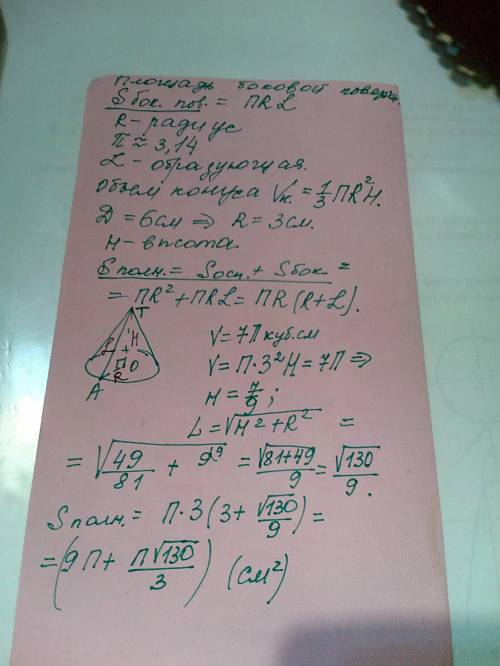 Площадь боковой поверхн.
Sбок. пов. = ПR.L
R - радиус
П ≈ 3,14
L - образующая.
объем конуса Vк. = 1/3 ПR²H.
D = 6см => R = 3см.
H - впсота
Sполн. = Sосн. + Sбок =
= ПR² + ПRL = ПR(R+L).
T
L H
П O
A R
V = 7П куб.см
V = П·3²H = 7П =>
H = 7/9 ;
L = √H² + R² =
= √49/81 + 9 = √81+49/9 = √130/9.
Sполн. = П·3(3 + √130/9) =
= (9П + П√130/3) (см²)